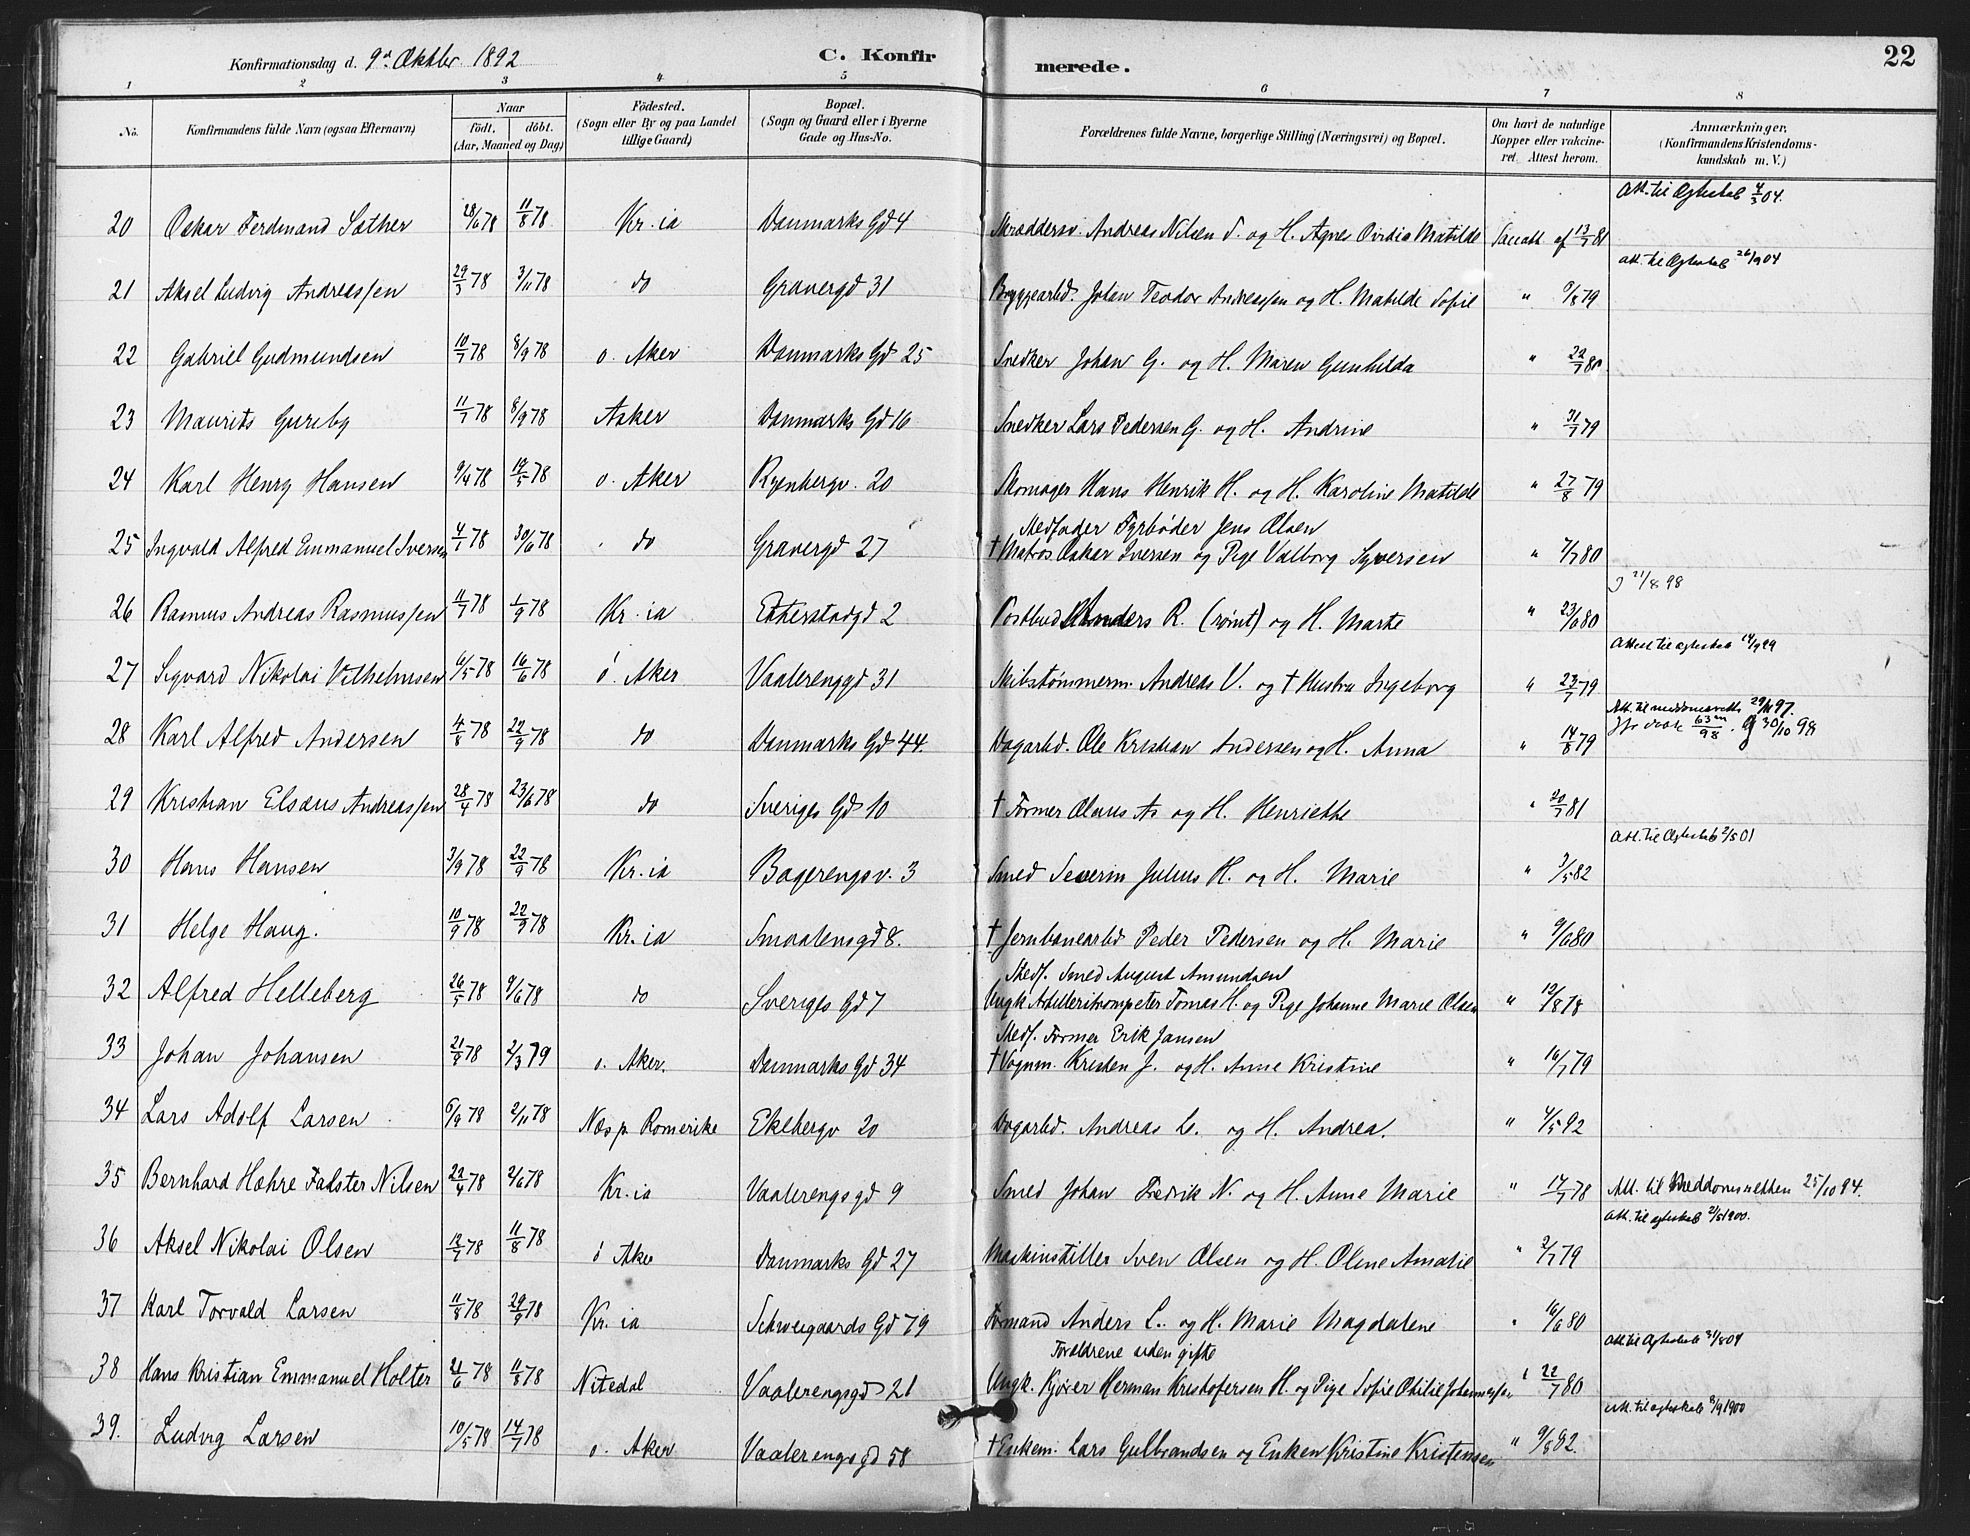 22
Konfirmationsdag d. 9de Oktbr. 1892 C. Konfirmerede.
1 2 3 4 5 6 7 8
No. Konfirmandens fulde Navn (ogsaa Efternavn) Naar födt. döbt. (Aar, Maaned og Dag) Födested. (Sogn eller By og paa Landet tillige Gaard) Bopæl. (Sogn og Gaard eller i Byerne Gade og Hus-No. Forældrenes fulde Navne, borgerlige Stilling (Næringsvei) og Bopæl. Om havt de naturlige Kopper eller vakcineret. Attest herom. Anmærkninger. (Konfirmandens Kristendomskundskab m. V.)
Att. til Ægteskab 4/3 04.
20 Oskar Ferdinand Sæther 28/6 78 11/8 78 Kr.ia Danmarks Gd 4 Skræddersv. Andreas Nilsen S. og H. Agnes Ovidia Matilde 13/7 81
Att. til Ægteskab 26/9 04
21 Aksel Ludvig Andreassen 29/3 78 3/11 78 do Gravergd 31 Bryggearbd. Johan Teodor Andreassen og H. Matilde Sofie " 9/8 79
22 Gabriel Gudmundsen 10/7 78 8/9 78 ö. Aker Danmarks Gd 25 Snedker Johan G. og H. Maren Gunhilda " 22/7 80
23 Maurits Gureby 11/7 78 8/9 78 Asker Danmarks Gd 16 Snedker Lars Pedersen G. og H. Andrine " 31/7 79
24 Karl Henry Hansen 9/4 78 19/5 78 ö. Aker Ryenbergv. 20 Skomager Hans Henrik H. og H. Karoline Matilde " 27/8 79
Stedfader Fyrböder Jens Olsen
25 Ingvald Alfred Emmanuel Iversen 4/1 78 30/6 78 do Gravergd 27 † Matros Oskar Iversen og Pige Valborg Syversen " 7/7 80
21/8 98
26 Rasmus Andreas Rasmussen 11/7 78 1/9 78 Kr.ia Etterstadgd 2 Postbud Anders R. (römt) og H. Marte " 23/6 80
Attest til ægteskab 14/9 99
27 Sigvard Nikolai Vilhelmsen 6/5 78 16/6 78 ö. Aker Vaalerenggd 31 Skibstömmerm. Andreas V. og † Hustru Ingeborg " 23/7 79
Att. til meddomsrett 29/11 97.
28 Karl Alfred Andersen 4/8 78 22/9 78 do Danmarks Gd 44. Dagarbd. Ole Kristian Andersen og H. Anna " 14/8 79 30/10 98
29 Kristian Elsæus Andreassen 28/4 78 23/6 78 do Sveriges Gd 10 † Former Olaus As og H. Henriette " 20/7 81
Att. til Ægteskab 2/5 01
30 Hans Hansen 3/9 78 22/9 78 Kr.ia Bagerengsv. 3 Smed Severin Julius H. og H. Marie " 3/5 82
31 Helge Haug. 10/9 78 22/9 78 Kr.ia Smaalensgd 8. † Jernbanearbd Peder Pedersen og H. Marie " 9/6 80
Stedf. Smed August Amundsen
32 Alfred Helleberg 26/5 78 9/6 78 do Sveriges Gd 7 Ungk. Artilleritrompeter Tomas H. og Pige Johanne Marie Olsen " 12/8 78
Stedf. Former Erik Jansen
33 Johan Johansen 21/9 78 2/3 79 ö. Aker. Danmarks Gd 34 † Vognm. Kristen J. og H. Anne Kristine " 16/7 79
34 Lars Adolf Larsen 6/9 78 2/11 78 Næs p. Romerike Ekebergv 20 Dagarbd. Andreas L. og H. Andrea. " 4/5 92
35 Bernhard Hæhre Falster Nilsen 22/4 78 2/6 78 Kr.ia Vaalerengsgd 9 Smed Johan Fredrik N. og H. Anne Marie " 17/7 78 Att. til Meddomsretten 25/10 94.
Att. til ægteskab 2/5 1900.
36 Aksel Nikolai Olsen 12/7 78 11/8 78 ö Aker Danmarks Gd 27 Maskinstiller Sven Olsen og H. Oline Amalie " 2/7 79
37 Karl Torvald Larsen 11/8 78 29/9 78 Kr.ia Schweigaards Gd 79 Formand Anders L. og H. Marie Magdalene " 16/6 80
Forældrene siden gifte Att. til Ægteskab 04
38 Hans Kristian Emmanuel Holter 21/6 78 11/8 78 Nitedal Vaalerengsgd 21 Ungk. Kjörer Herman Kristofersen H. og Pige Sofie Otilie " 22/7 80
Att. til ægteskab 8/9 1900
39. Ludvig Larsen 10/5 78 14/7 78 ö. Aker Vaalerengsgd 58 † Enkem. Lars Gulbrandsen og Enken Kristine Kristensen " 9/8 82.